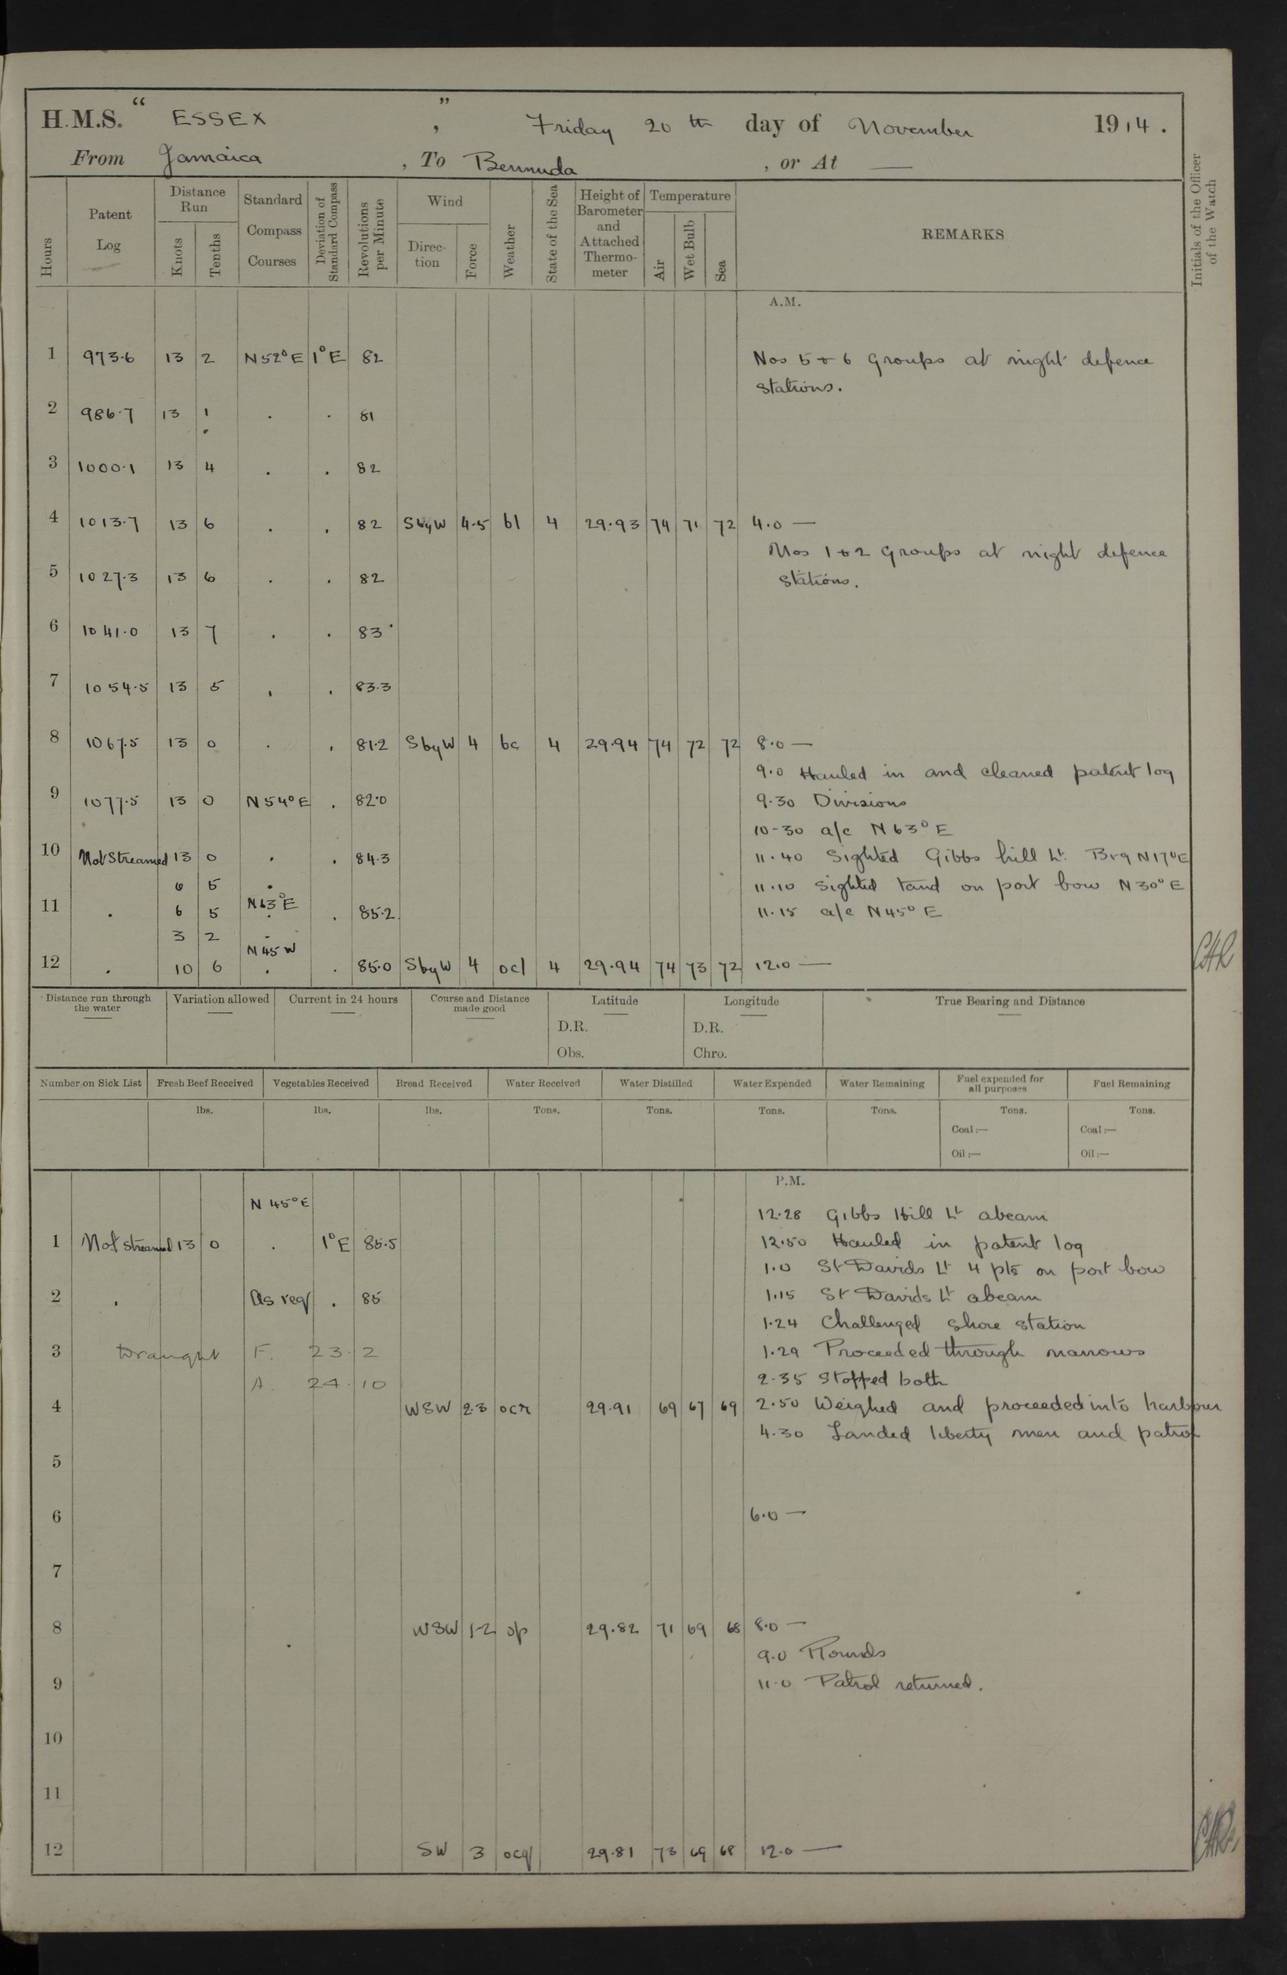 H.M.S. " ESSEX ", Friday 20th day of November 1914.
From Jamaica, To Bermuda, or At —
Hours
Patent Log
Distance Run
Knots
Tenths
Standard Compass Courses
Deviation of Standard Compass
Revolutions per Minute
Wind
Direction
Force
Weather
State of the Sea
Height of Barometer and Attached Thermometer
Temperature
Air
Wet Bulb
Sea
REMARKS
Initials of the Officer of the Watch
A.M.
1 973.6 13 2 N 52° E 1° E 82 Nos 5 & 6 Groups at night defence
stations.
2 986.7 13 1 . . 81
3 1000.1 13 4 . . 82
4 1013.7 13 6 . . 82 SbyW 4.5 bl 4 29.93 74 71 72 4.0 —
Nos 1 & 2 Groups at night defence
5 1027.3 13 6 . . 82 stations.
6 1041.0 13 7 . . 83
7 1054.5 13 5 . . 83.3
8 1067.5 13 0 . . 81.2 SbyW 4 bc 4 29.94 74 72 72 8.0 —
9.0 Hauled in and cleaned patent log
9 1077.5 13 0 N 54° E . 82.0 9.30 Divisions
10-30 a/c N 63° E
10 Not Streamed 13 0 . . 84.3 11.40 Sighted Gibbs hill Lt. Brg N17°E
6 5 . 11.10 sighted land on port bow N 30° E
11 . 6 5 N63°E . 85.2 11.15 a/c N45° E
3 2 .
12 . 10 6 N45W . 85.0 SbyW 4 ocl 4 29.94 74 73 72 12.0 —
Distance run through the water
Variation allowed
Current in 24 hours
Course and Distance made good
Latitude
D.R.
Obs.
Longitude
D.R.
Chro.
True Bearing and Distance
Number on Sick List
Fresh Beef Received
Vegetables Received
Bread Received
Water Received
Water Distilled
Water Expended
Water Remaining
Fuel expended for all purposes
Fuel Remaining
lbs. lbs. lbs. Tons. Tons. Tons. Tons. Tons. Tons.
Coal :— Coal :—
Oil :— Oil :—
P.M.
N 45° E 12.28 Gibbs Hill Lt abeam
1 Not streamed 13 0 . 1° E 85.5 12.50 Hauled in patent log
1.0 St Davids Lt 4 pts on port bow
2 . As req . 85 1.15 St Davids Lt abeam
1.24 Challenged shore station
3 Draught F. 23. 2 1.29 Proceeded through narrows
A 24. 10 2.35 Stopped both
4 WSW 2.3 ocr 29.91 69 67 69 2.50 Weighed and proceeded into harbour
4.30 Landed liberty men and patrol
5
6 6.0 —
7
8 WSW 1-2 op 29.82 71 69 68 8.0 —
9.0 Rounds
9 11.0 Patrol returned.
10
11
12 SW 3 ocq 29.81 73 69 68 12.0 —